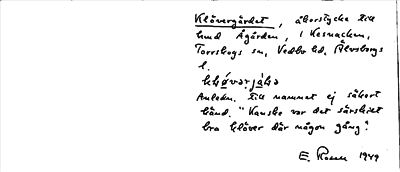 Klövergärdet, åkerstycke till
hmd Ågården, i Kesnacken,
Torrskogs sn, Vedbo hd, Älvsborgs
l.
klø̀vərjǽḷə
Anledn. till namnet ej säkert
känd. "Kanske var det särskilt
bra klöver där någon gång".
E. Rosell 1949